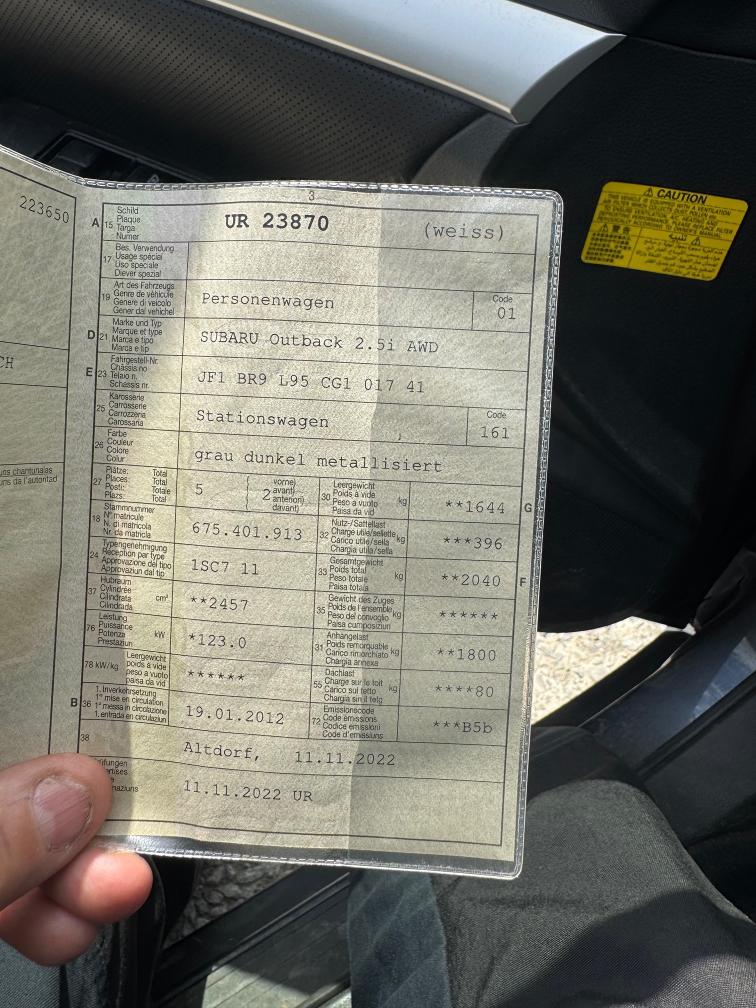 223650
CH
3
A 15 Schild
Plaque
Targa
Numer
UR 23870 (weiss)
17 Bes. Verwendung
Usage spécial
Uso speciale
Diever spezial
19 Art des Fahrzeugs
Genre de véhicule
Genere di veicolo
Gener dal vehichel
Personenwagen
Code
01
D 21 Marke und Typ
Marque et type
Marca e tipo
Marca e tip
SUBARU Outback 2.5i AWD
E 23 Fahrgestell-Nr.
Châssis no
Telaio n.
Schassis nr.
JF1 BR9 L95 CG1 017 41
25 Karosserie
Carrosserie
Carrozzeria
Carossaria
Stationswagen
Code
161
26 Farbe
Couleur
Colore
Colur
grau dunkel metallisiert
27 Plätze: Total
Places: Total
Posti: Totale
Plazs: Total
5
2
vorne)
avant)
anteriori)
davant)
30 Leergewicht
Poids à vide
Peso a vuoto
Paisa da vid
kg
**1644
G
18 Stammnummer
N° matricule
N. di matricola
Nr. da matricla
675.401.913
32 Nutz-/Sattellast
Charge utile/sellette
Carico utile/sella
Chargia utila/sella
kg
***396
24 Typengenehmigung
Réception par type
Approvazione del tipo
Approvaziun dal tip
1SC7 11
33 Gesamtgewicht
Poids total
Peso totale
Paisa totala
kg
**2040
F
37 Hubraum
Cylindrée
Cilindrata
Cilindrada
cm³
**2457
35 Gewicht des Zuges
Poids de l'ensemble
Peso del convoglio
Paisa cumposiziun
kg
******
76 Leistung
Puissance
Potenza
Prestaziun
kW
*123.0
31 Anhängelast
Poids remorquable
Carico rimorchiato
Chargia annexa
kg
**1800
78 kW/kg
Leergewicht
poids à vide
peso a vuoto
paisa da vid
******
55 Dachlast
Charge sur le toit
Carico sul tetto
Chargia sin il tetg
kg
****80
B 36 1. Inverkehrsetzung
1re mise en circulation
1a messa in circolazione
1. entrada en circulaziun
19.01.2012
72 Emissionscode
Code émissions
Codice emissioni
Code d'emissiuns
***B5b
38
Altdorf, 11.11.2022
11.11.2022 UR
CAUTION